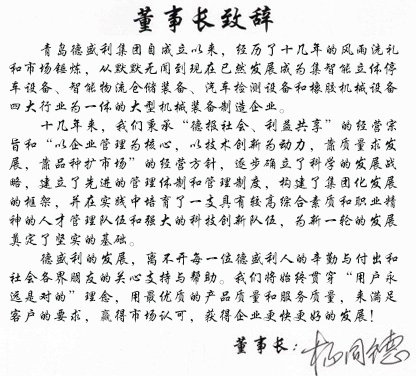 董事长致辞
青岛德盛利集团自成立以来，经历了十几年的风雨洗礼
和市场锤炼，从默默无闻到现在已然发展成为集智能立体停
车设备、智能物流仓储装备、汽车检测设备和橡胶机械设备
四大行业为一体的大型机械装备制造企业。
十几年来，我们秉承“德报社会、利益共享”的经营宗
旨和“以企业管理为核心，以技术创新为动力，靠质量求发
展，靠品种扩市场”的经营方针，逐步确立了科学的发展战
略，建立了先进的管理体制和管理制度，构建了集团化发展
的框架，并在实践中培育了一支具有较高综合素质和职业精
神的人才管理队伍和强大的科技创新队伍，为新一轮的发展
奠定了坚实的基础。
德盛利的发展，离不开每一位德盛利人的辛勤与付出和
社会各界朋友的关心支持与帮助。我们将始终贯穿“用户永
远是对的”理念，用最优质的产品质量和服务质量，来满足
客户的要求，赢得市场认可，获得企业更快更好的发展！
董事长：杨同德